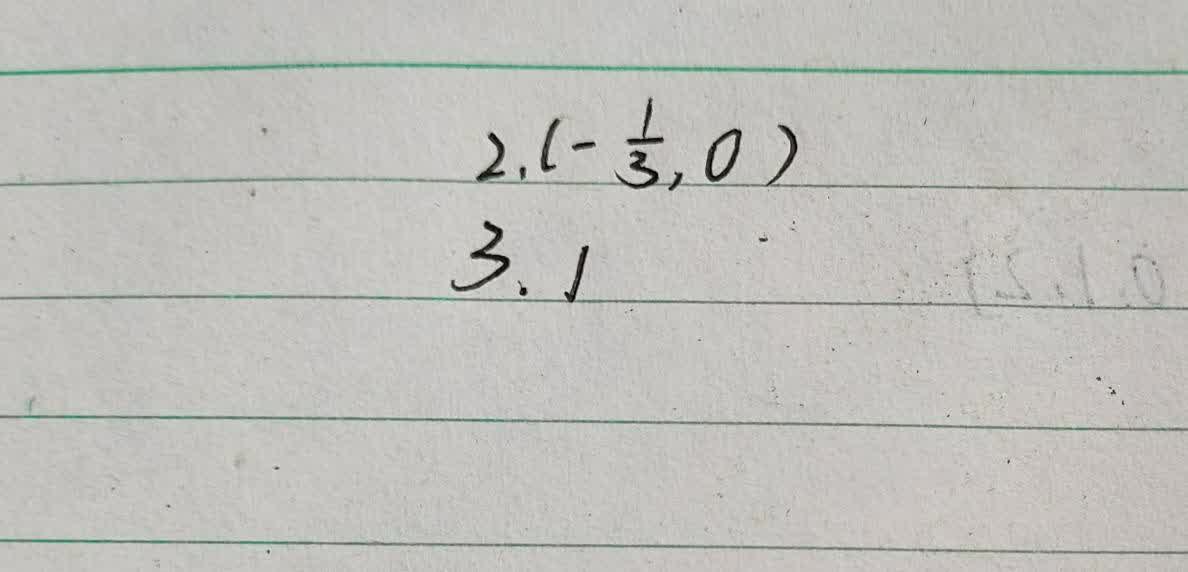 2.(-1/3,0)
3.1